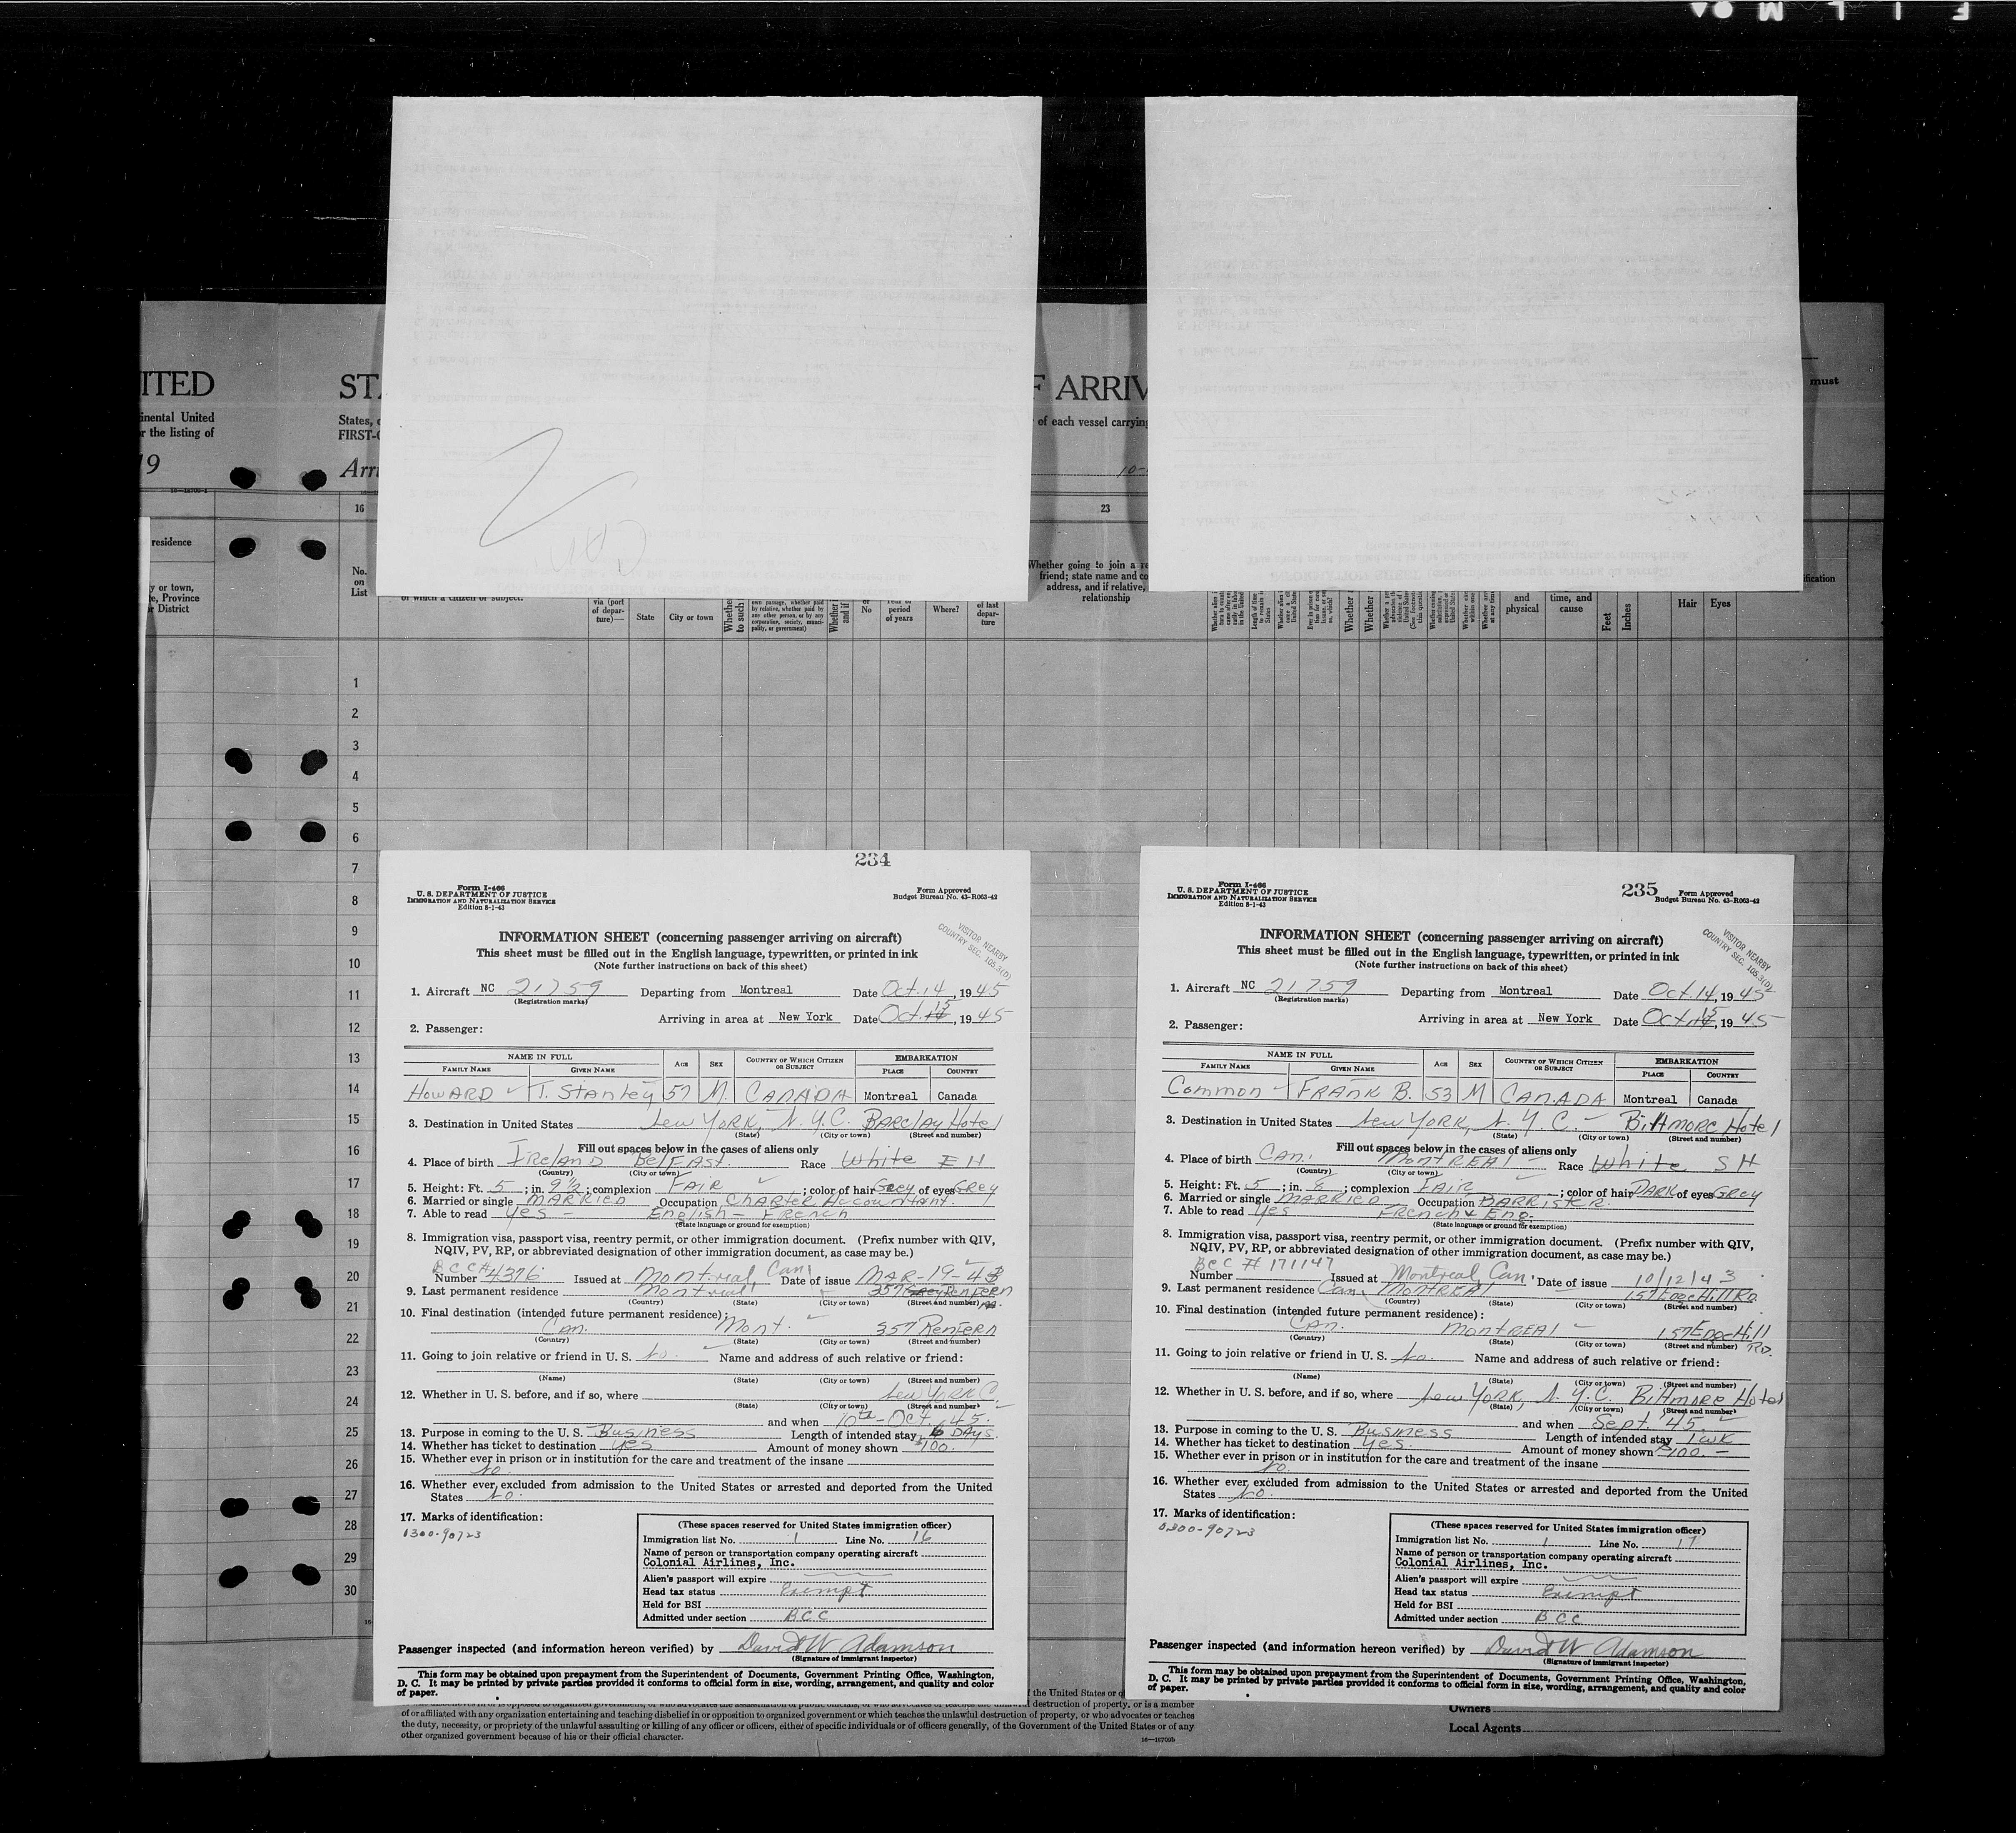 F I L M
ITED
inental United
r the listing of
19
STA
States,
FIRST-
Arri
F ARRIV
of each vessel carrying
10-
must
16
23
residence
y or town,
e, Province
r District
No.
on
List
of which a citizen or subject.
via (port
of depar-
ture)—
State
City or town
Whether
to such
own passage, whether paid
by relative, whether paid by
any other person, or by any
corporation, society, munici-
pality, or government)
or
No
Year or
period
of years
Where?
of last
depar-
ture
Whether going to join a re
friend; state name and co
address, and if relative,
relationship
and
physical
time, and
cause
Feet
Inches
Hair
Eyes
ification
1
2
3
4
5
6
7
8
9
10
11
12
13
14
15
16
17
18
19
20
21
22
23
24
25
26
27
28
29
30
234
Form I-466
U. S. DEPARTMENT OF JUSTICE
IMMIGRATION AND NATURALIZATION SERVICE
Edition 8-1-43
Form Approved
Budget Bureau No. 43-R063-42
VISITOR NEARBY
COUNTRY SEC. 105.3(D)
INFORMATION SHEET (concerning passenger arriving on aircraft)
This sheet must be filled out in the English language, typewritten, or printed in ink
(Note further instructions on back of this sheet)
1. Aircraft NC 21759 Departing from Montreal Date Oct. 14, 1945
(Registration marks)
Arriving in area at New York Date Oct. 15, 1945
2. Passenger:
NAME IN FULL
FAMILY NAME GIVEN NAME AGE SEX COUNTRY OF WHICH CITIZEN OR SUBJECT EMBARKATION
PLACE COUNTRY
HOWARD T. Stanley 57 M. CANADA Montreal Canada
3. Destination in United States New YORK, N.Y.C. BARCLAY Hotel
(State) (City or town) (Street and number)
Fill out spaces below in the cases of aliens only
4. Place of birth IRELAND BELFAST Race White EH
(Country) (City or town)
5. Height: Ft. 5; in. 9½; complexion FAIR; color of hair Grey of eyes GREY
6. Married or single MARRIED Occupation CHARTER Accountant
7. Able to read Yes - English - French
(State language or ground for exemption)
8. Immigration visa, passport visa, reentry permit, or other immigration document. (Prefix number with QIV,
NQIV, PV, RP, or abbreviated designation of other immigration document, as case may be.)
BCC#
Number 4376 Issued at Montreal, Can. Date of issue MAR-19-43
9. Last permanent residence Montreal 357 Renfern
(Country) (State) (City or town) (Street and number)
10. Final destination (intended future permanent residence):
Can. Mont. 357 Renfern
(Country) (State) (City or town) (Street and number)
11. Going to join relative or friend in U. S. No. Name and address of such relative or friend:
(Name) (State) (City or town) (Street and number)
12. Whether in U. S. before, and if so, where New York C.
(State) (City or town) (Street and number)
and when 10th-Oct. 45.
13. Purpose in coming to the U. S. Business Length of intended stay 6 DAYS
14. Whether has ticket to destination yes Amount of money shown $100.
15. Whether ever in prison or in institution for the care and treatment of the insane
No.
16. Whether ever excluded from admission to the United States or arrested and deported from the United
States No.
17. Marks of identification:
0300-90723
(These spaces reserved for United States immigration officer)
Immigration list No. 1 Line No. 16
Name of person or transportation company operating aircraft
Colonial Airlines, Inc.
Alien's passport will expire
Head tax status Exempt
Held for BSI
Admitted under section BCC
Passenger inspected (and information hereon verified) by David W Adamson
(Signature of immigrant inspector)
This form may be obtained upon prepayment from the Superintendent of Documents, Government Printing Office, Washington,
D. C. It may be printed by private parties provided it conforms to official form in size, wording, arrangement, and quality and color
of paper.
235
Form I-466
U. S. DEPARTMENT OF JUSTICE
IMMIGRATION AND NATURALIZATION SERVICE
Edition 8-1-43
Form Approved
Budget Bureau No. 43-R063-42
VISITOR NEARBY
COUNTRY SEC. 105.3(D)
INFORMATION SHEET (concerning passenger arriving on aircraft)
This sheet must be filled out in the English language, typewritten, or printed in ink
(Note further instructions on back of this sheet)
1. Aircraft NC 21759 Departing from Montreal Date Oct. 14, 1945
(Registration marks)
Arriving in area at New York Date Oct. 15, 1945
2. Passenger:
NAME IN FULL
FAMILY NAME GIVEN NAME AGE SEX COUNTRY OF WHICH CITIZEN OR SUBJECT EMBARKATION
PLACE COUNTRY
Common FRANK B. 53 M CANADA Montreal Canada
3. Destination in United States New YORK, N.Y.C. - Biltmore Hotel
(State) (City or town) (Street and number)
Fill out spaces below in the cases of aliens only
4. Place of birth CAN. MontREAL Race White SH
(Country) (City or town)
5. Height: Ft. 5; in. 8; complexion FAIR; color of hair DARK of eyes GREY
6. Married or single MARRIED Occupation BARRISTER.
7. Able to read Yes FRENCH & Eng.
(State language or ground for exemption)
8. Immigration visa, passport visa, reentry permit, or other immigration document. (Prefix number with QIV,
NQIV, PV, RP, or abbreviated designation of other immigration document, as case may be.)
BCC # 171147
Number Issued at Montreal, Can. Date of issue 10/12/43
9. Last permanent residence Can. MontREAL 157 Edge Hill RD.
(Country) (State) (City or town) (Street and number)
10. Final destination (intended future permanent residence):
Can. MontREAL 157 Edge Hill RD.
(Country) (State) (City or town) (Street and number)
11. Going to join relative or friend in U. S. No. Name and address of such relative or friend:
(Name) (State) (City or town) (Street and number)
12. Whether in U. S. before, and if so, where New YORK, N.Y.C. Biltmore Hotel
(State) (City or town) (Street and number)
and when Sept. '45.
13. Purpose in coming to the U. S. Business Length of intended stay 1 wk
14. Whether has ticket to destination Yes. Amount of money shown $100. -
15. Whether ever in prison or in institution for the care and treatment of the insane
No
16. Whether ever excluded from admission to the United States or arrested and deported from the United
States No.
17. Marks of identification:
0300-90723
(These spaces reserved for United States immigration officer)
Immigration list No. 1 Line No. 17
Name of person or transportation company operating aircraft
Colonial Airlines, Inc.
Alien's passport will expire
Head tax status Exempt
Held for BSI
Admitted under section BCC
Passenger inspected (and information hereon verified) by David W Adamson
(Signature of immigrant inspector)
This form may be obtained upon prepayment from the Superintendent of Documents, Government Printing Office, Washington,
D. C. It may be printed by private parties provided it conforms to official form in size, wording, arrangement, and quality and color
of paper.
the United States or
destruction of property, or is a member
of or affiliated with any organization entertaining and teaching disbelief in or opposition to organized government or which teaches the unlawful destruction of property, or who advocates or teaches
the duty, necessity, or propriety of the unlawful assaulting or killing of any officer or officers, either of specific individuals or of officers generally, of the Government of the United States or of any
other organized government because of his or their official character.
16—16700b
Owners
Local Agents